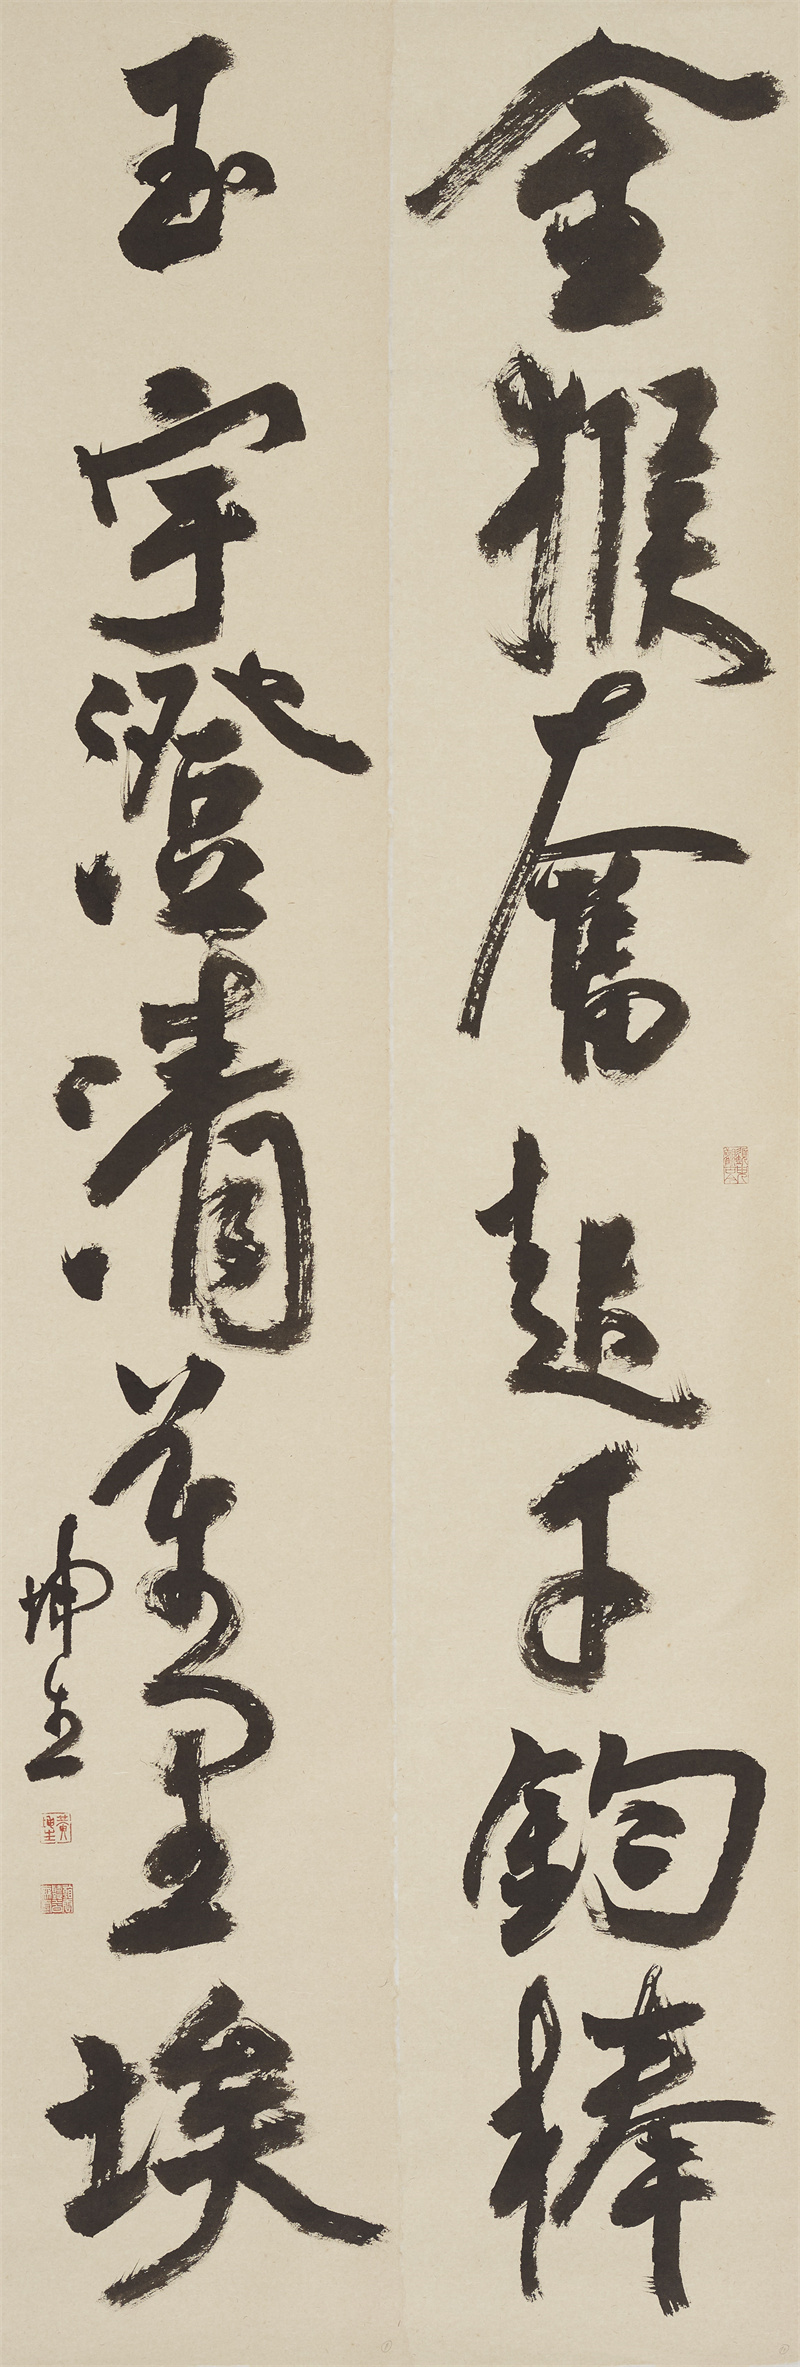 金猴奮起千鈞棒
玉宇澄清萬里埃
坤生
黃坤生